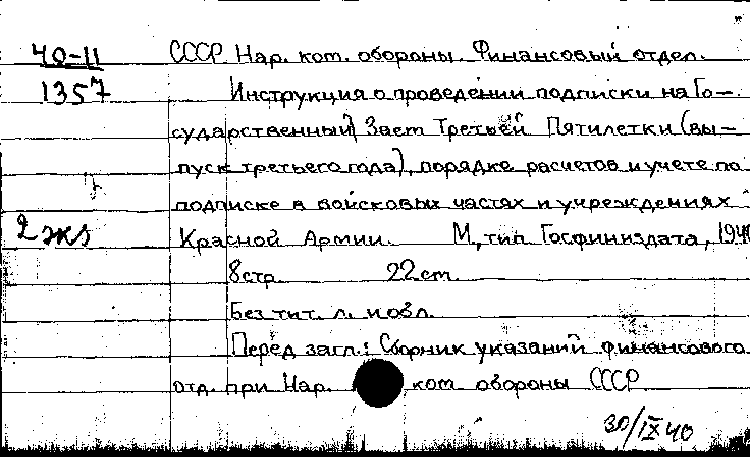 40-11 СССР Нар. ком. обороны. Финансовый отдел.
1357 Инструкция о проведении подписки на Го-
сударственный Заем Третьей Пятилетки (вы-
пуск третьего года), порядке расчетов и учете по
подписке в войсковых частях и учреждениях
2 экз Красной Армии. М, тип. Госфиниздата, 1940
8 стр. 22 cm.
Без тит. л. и обл.
Перед загл.: Сборник указаний финансового
отд. при Нар. ком. обороны СССР.
30/IX 40